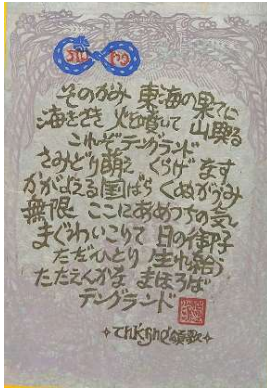 そのかみ 東海の果てに
海をさき 火を噴いて 山興る
これぞテングランド
さみどり萌え くらげ ます
かがよえる国ばら くぬがうみ
無限 ここにあめつちの気
まぐわいこりて 日の御子
ただひとり 生れ給う
たたえんかな まほろば
テングランド
頌歌